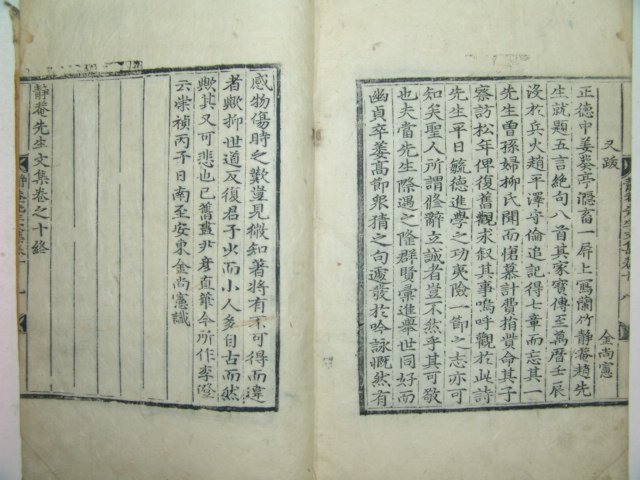 又跋
金尚憲
正德中姜募亭隱畜一屏上寫蘭竹靜菴趙先
生就題五言絶句八首其家寶傳至萬曆壬辰
沒於兵火趙平澤守倫追記得七章而忘其一
先生曾孫婦柳氏聞而悕慕計費捐費命其子
察訪松年俾復舊觀求叙其事嗚呼觀於此詩
先生平日毓德進學之功夷險一節之志亦可
知矣聖人所謂修辭立誠者豈不然乎其可敬
也夫當先生際遇之隆群賢彙進擧世同好而
幽貞卒萎高節衆猜之句遽發於吟詠慨然有
感物傷時之歎豈見微知著將有不可得而違
者歟抑世道反復君子少而小人多自古而然
歟其又可悲也已舊畫尹彦直筆今所作李澄
云崇禎丙子日南至安東金尚憲識
靜菴先生文集卷之十終